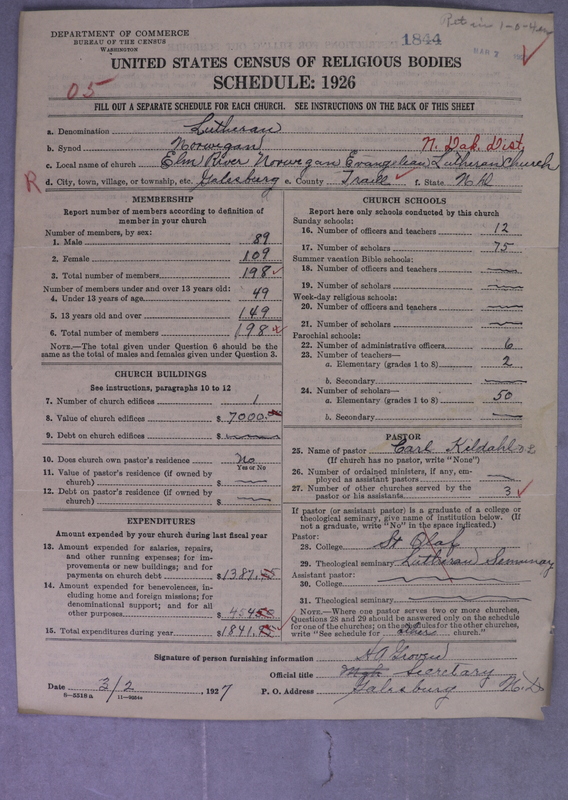 Put in 1-0-
DEPARTMENT OF COMMERCE
BUREAU OF THE CENSUS
WASHINGTON
1844
MAR 7
UNITED STATES CENSUS OF RELIGIOUS BODIES
SCHEDULE: 1926
05
FILL OUT A SEPARATE SCHEDULE FOR EACH CHURCH. SEE INSTRUCTIONS ON THE BACK OF THIS SHEET
a. Denomination Lutheran
b. Synod Norwegian N. Dak. Dist.
c. Local name of church Elm River Norwegan Evangelian Lutheran Church
R d. City, town, village, or township, etc. Galesburg e. County Traill f. State ND
MEMBERSHIP
Report number of members according to definition of
member in your church
Number of members, by sex:
1. Male 89
2. Female 109
3. Total number of members 198
Number of members under and over 13 years old:
4. Under 13 years of age 49
5. 13 years old and over 149
6. Total number of members 198
NOTE.—The total given under Question 6 should be the
same as the total of males and females given under Question 3.
CHURCH BUILDINGS
See instructions, paragraphs 10 to 12
7. Number of church edifices 1
8. Value of church edifices $ 7000.00
9. Debt on church edifices $
10. Does church own pastor's residence No
Yes or No
11. Value of pastor's residence (if owned by
church) $
12. Debt on pastor's residence (if owned by
church) $
EXPENDITURES
Amount expended by your church during last fiscal year
13. Amount expended for salaries, repairs,
and other running expenses; for im-
provements or new buildings; and for
payments on church debt $ 1387.
14. Amount expended for benevolences, in-
cluding home and foreign missions; for
denominational support; and for all
other purposes $ 454
15. Total expenditures during year $ 1841.
CHURCH SCHOOLS
Report here only schools conducted by this church
Sunday schools:
16. Number of officers and teachers 12
17. Number of scholars 75
Summer vacation Bible schools:
18. Number of officers and teachers
19. Number of scholars
Week-day religious schools:
20. Number of officers and teachers
21. Number of scholars
Parochial schools:
22. Number of administrative officers 6
23. Number of teachers—
a. Elementary (grades 1 to 8) 2
b. Secondary
24. Number of scholars—
a. Elementary (grades 1 to 8) 50
b. Secondary
PASTOR
25. Name of pastor Carl Kildahl
(If church has no pastor, write "None")
26. Number of ordained ministers, if any, em-
ployed as assistant pastors
27. Number of other churches served by the
pastor or his assistants 3
If pastor (or assistant pastor) is a graduate of a college or
theological seminary, give name of institution below. (If
not a graduate, write "No" in the space indicated.)
Pastor:
28. College St Olaf
29. Theological seminary Lutheran Seminary
Assistant pastor:
30. College
31. Theological seminary
NOTE.—Where one pastor serves two or more churches,
Questions 28 and 29 should be answered only on the schedule
for one of the churches; on the schedules for the other churches,
write "See schedule for others church."
Signature of person furnishing information
Official title Secretary
Date 3/2, 1927 P. O. Address Galesburg N. D
8—5518 a